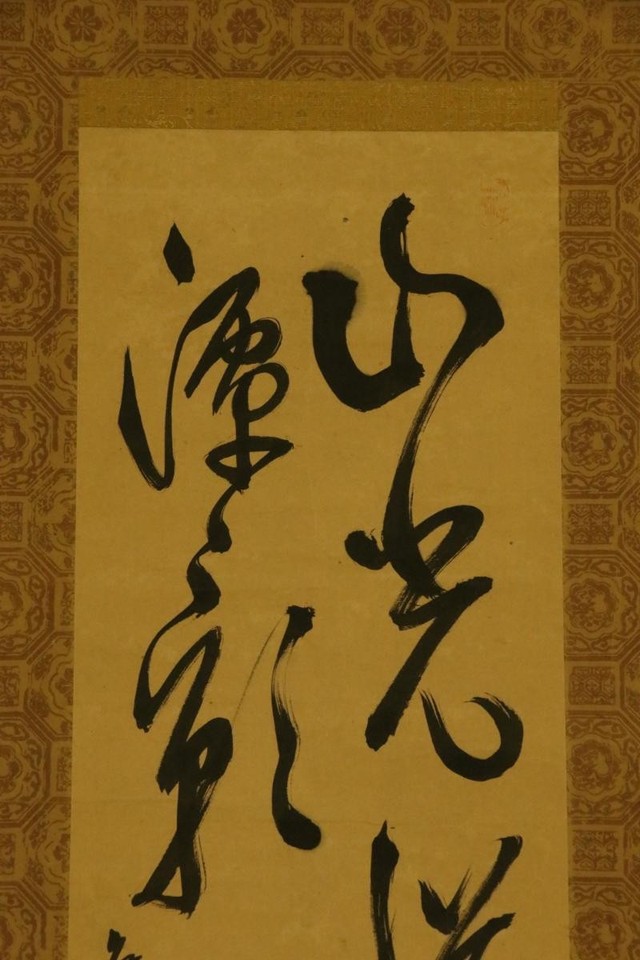 山光悦
潭影